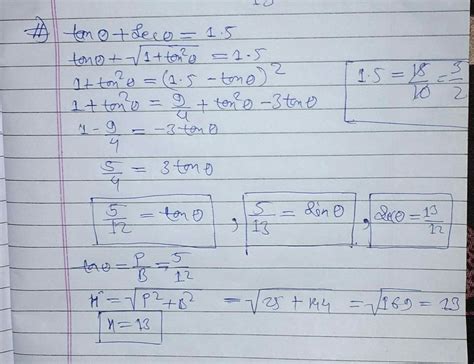 tanθ + secθ = 1.5
tanθ + √1+tan²θ = 1.5
1+tan²θ = (1.5 - tanθ)²
1.5 = 15/10 = 3/2
1 + tan²θ = 9/4 + tan²θ - 3tanθ
1 - 9/4 = -3tanθ
5/4 = 3tanθ
5/12 = tanθ , 5/13 = sinθ , secθ = 13/12
tanθ = P/B = 5/12
H = √P²+B² = √25+144 = √169 = 13
H = 13